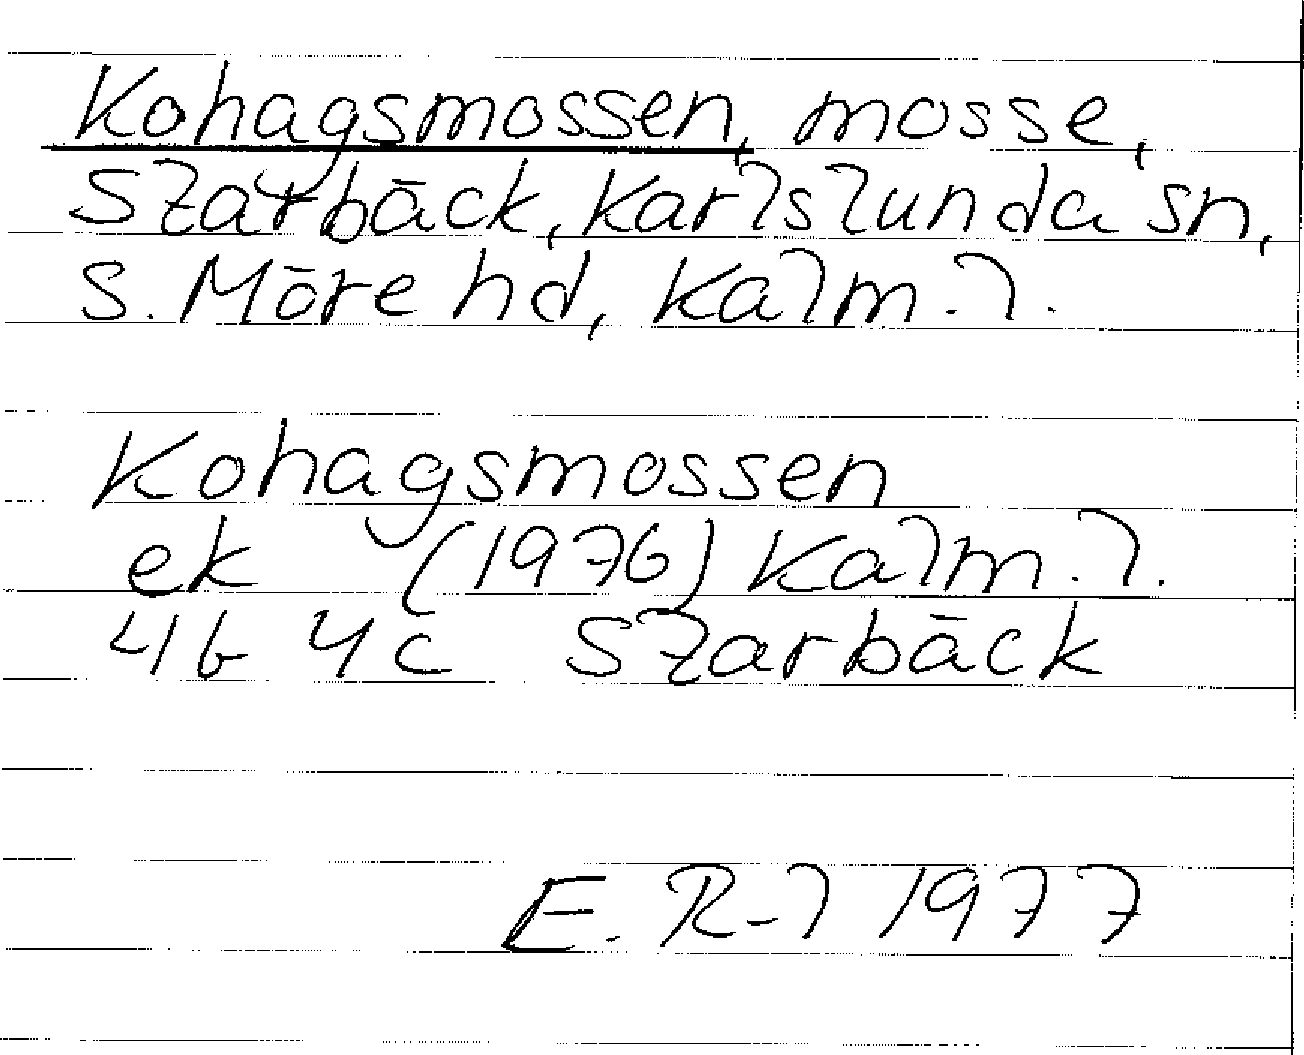 Kohagsmossen, mosse,
Slarbäck, Karlslunda sn,
S. Möre hd, Kalm. l.
Kohagsmossen
ek (1976) Kalm. l.
4G 4c Slarbäck
E. R-l 1977